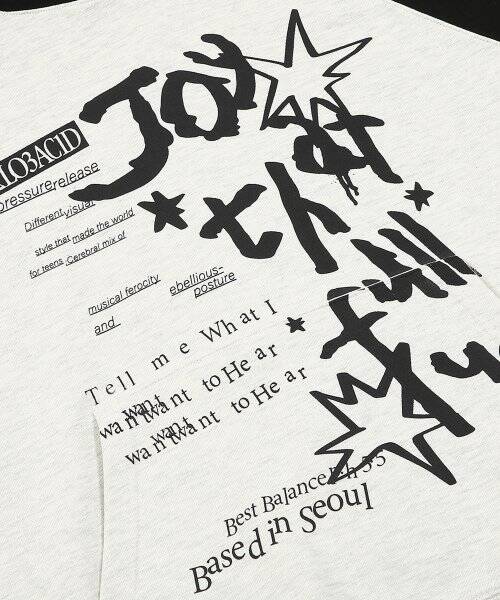 Joy
LO3ACID
pressurerelease
that
Different visual
style that made the world
for teens .Cerebral mix of
full
musical ferocity
ebellious-
posture
and
Tell me What I
want
wan want to Hear
want
wan want to Hear
Best Balance
Based in Seoul